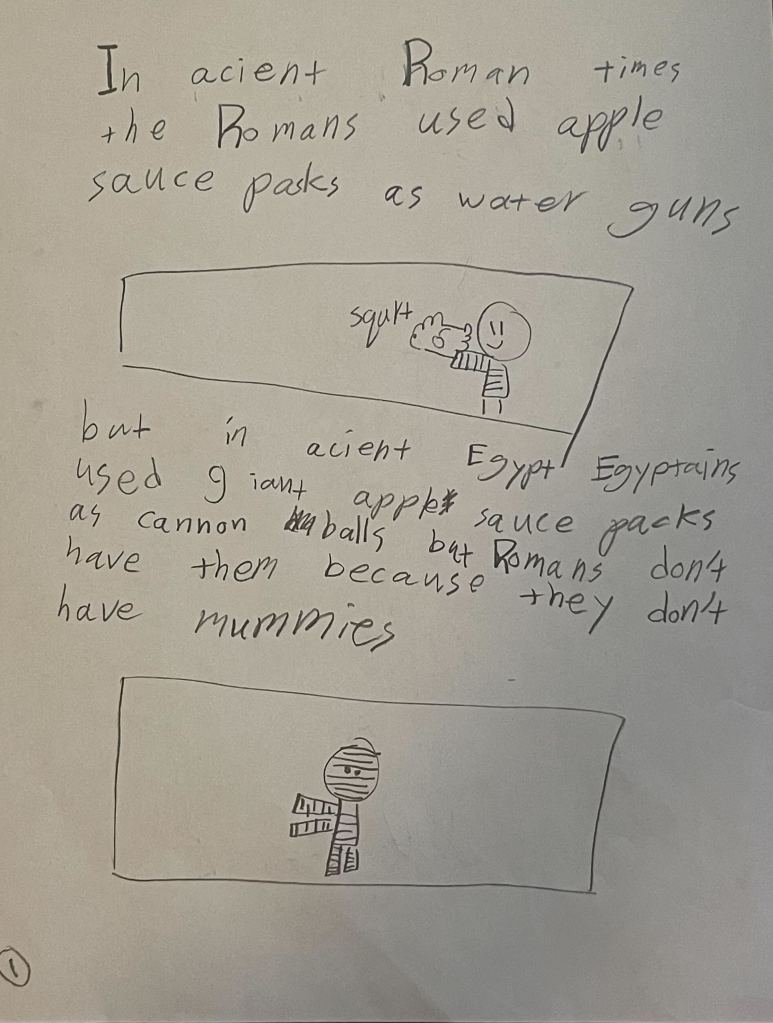 In acient Roman times
the Romans used apple
sauce packs as water guns
squirt
but in acient Egypt Egyptains
used giant apple sauce packs
as cannon balls but Romans don't
have them because they don't
have mummies
1